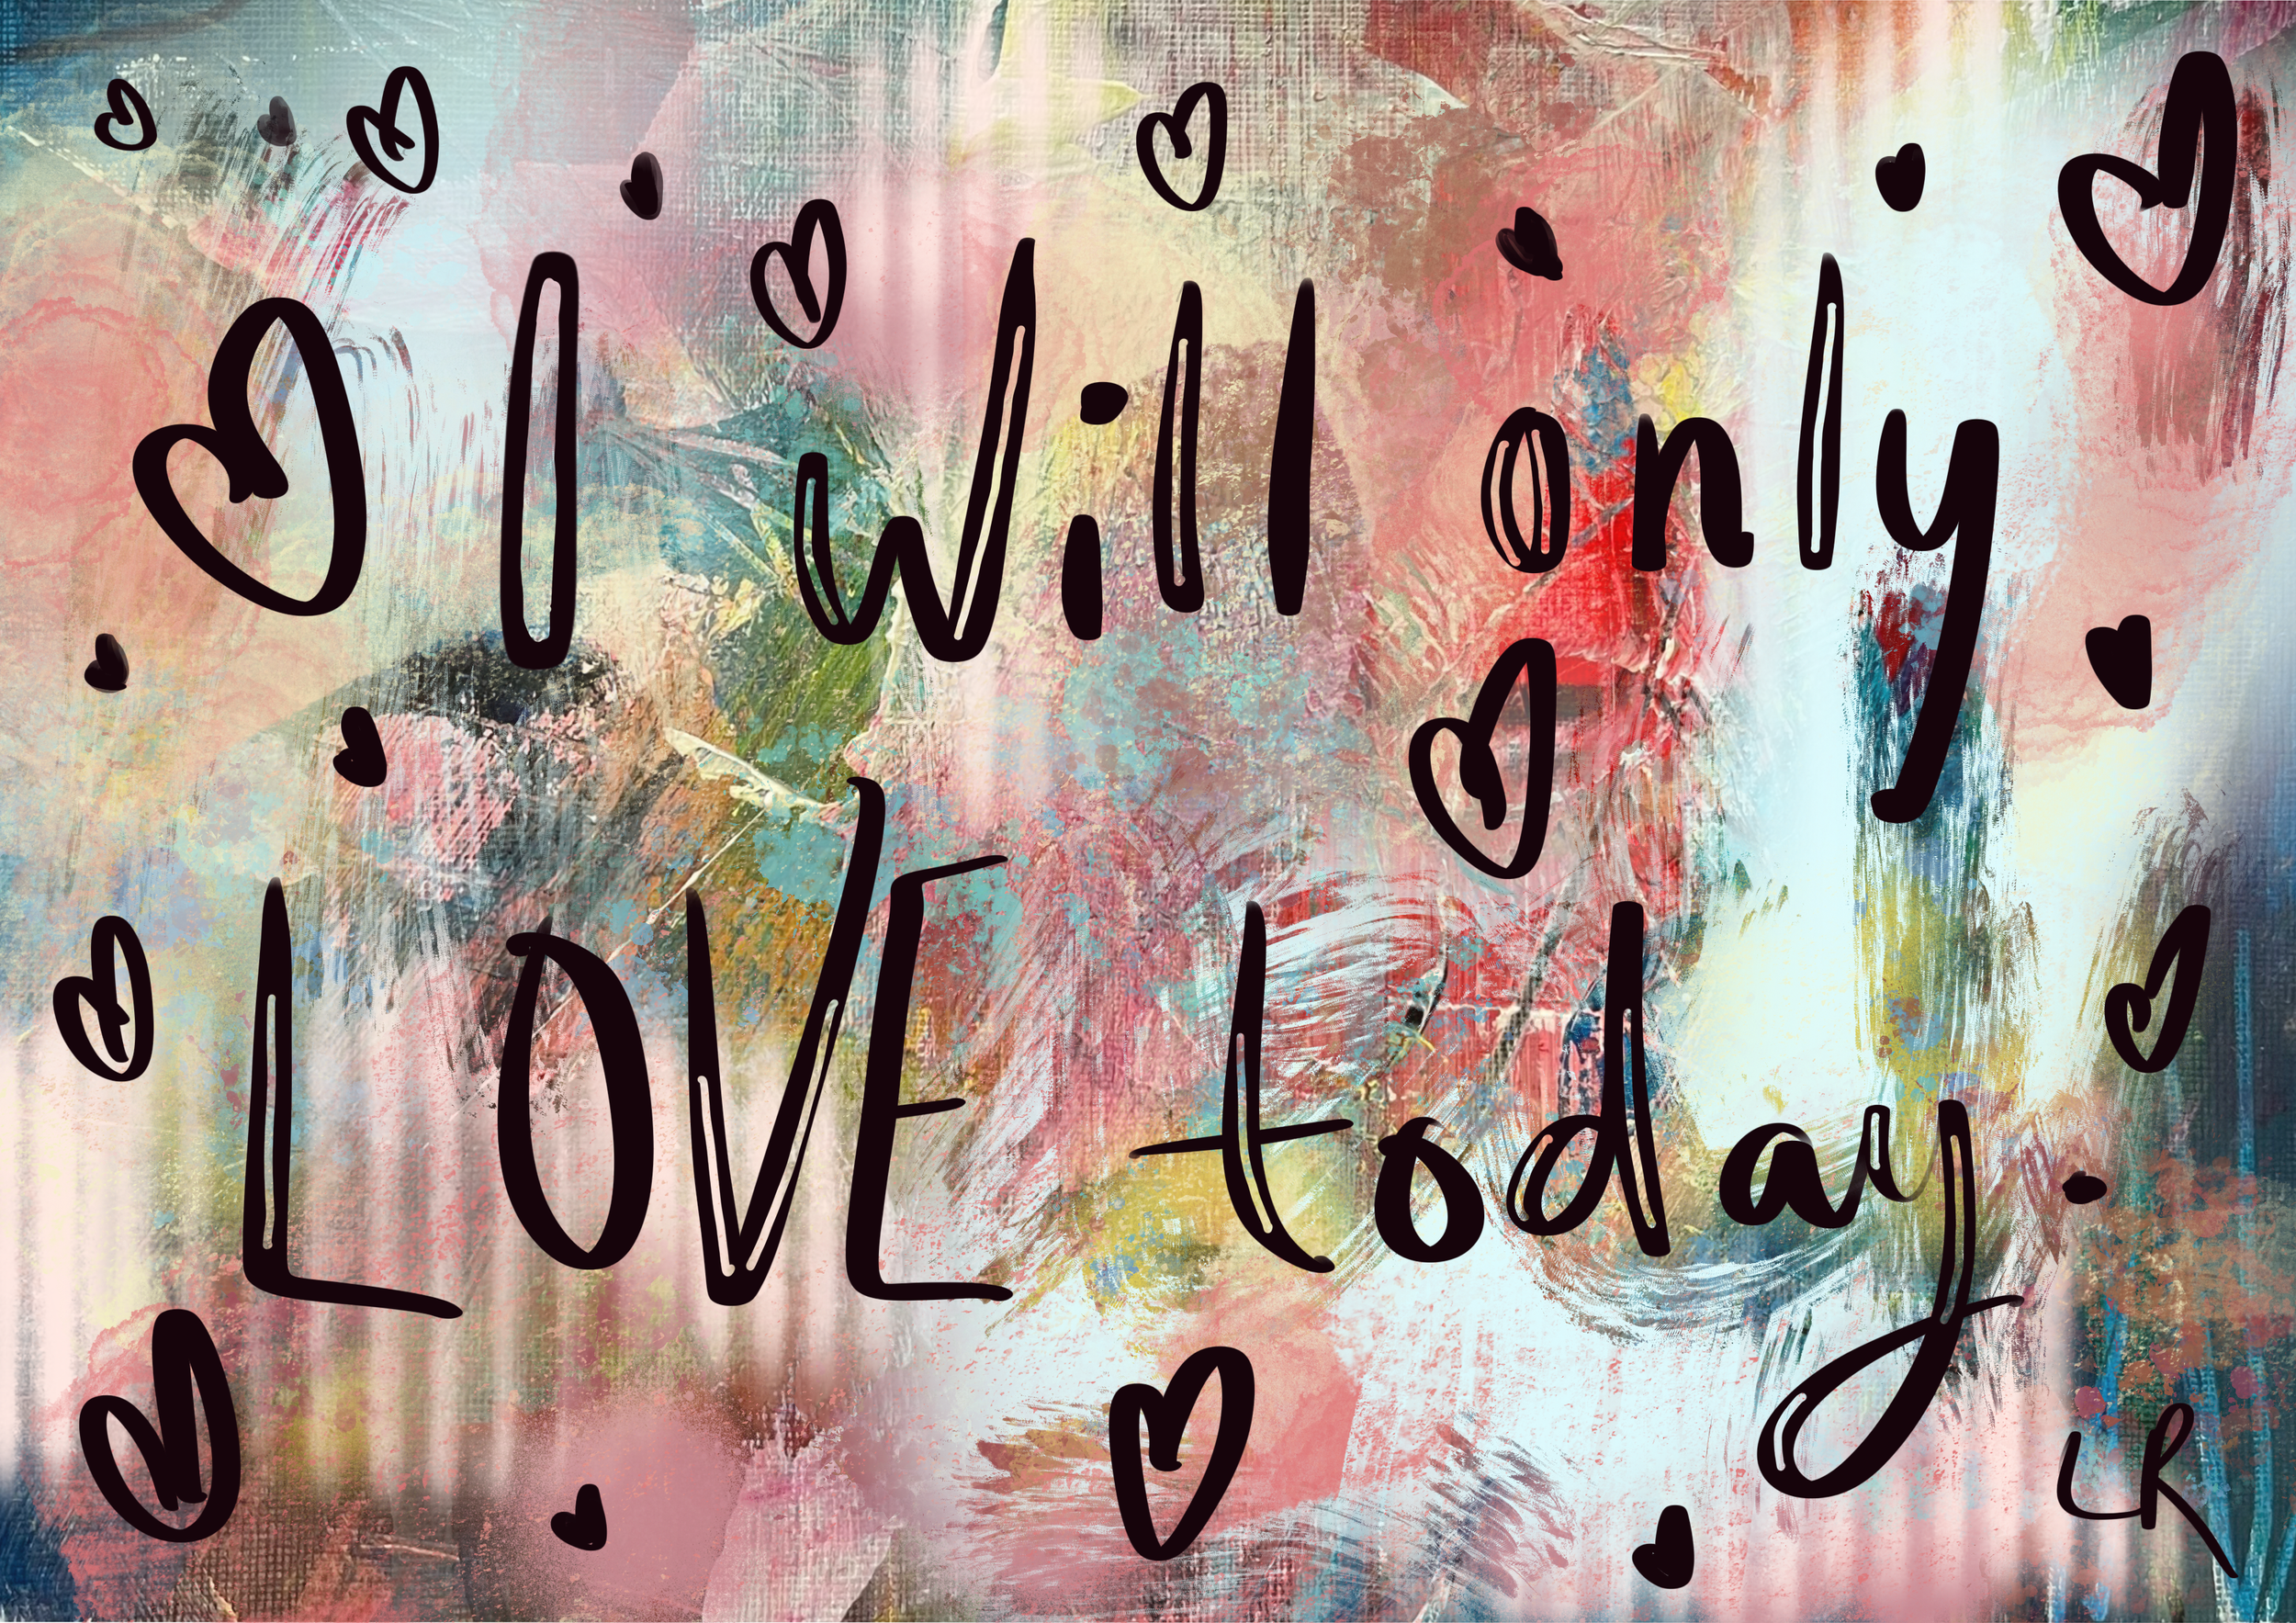 I will only
LOVE today.
LR